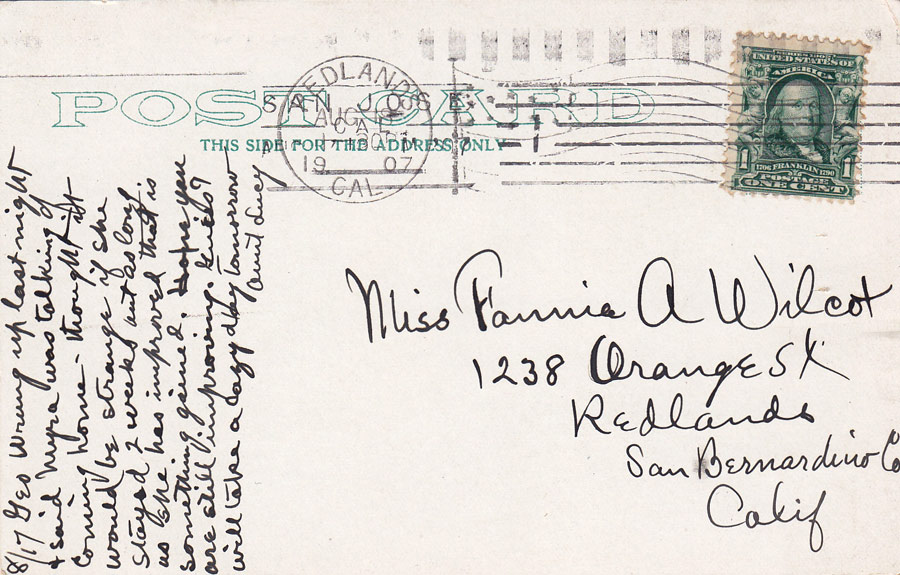 POST CARD
THIS SIDE FOR THE ADDRESS ONLY
REDLANDS
SAN JO
AUG
CAL
19 07
CAL
SERIES 1902
UNITED STATES OF
AMERICA
1 1706 FRANKLIN 1790 1
POSTAGE
ONE CENT
8/17 Geo wrung up last night
& said Myra was talking of
coming home - thought it
would be strange if she
stayed 2 weeks out as long
as she has improved that is
something gained. Hope you
are still improving.
will take a lazy day tomorrow
Aunt Lucy
Miss Fannie A Wilcot
1238 Orange St
Redlands
San Bernardino Co
Calif